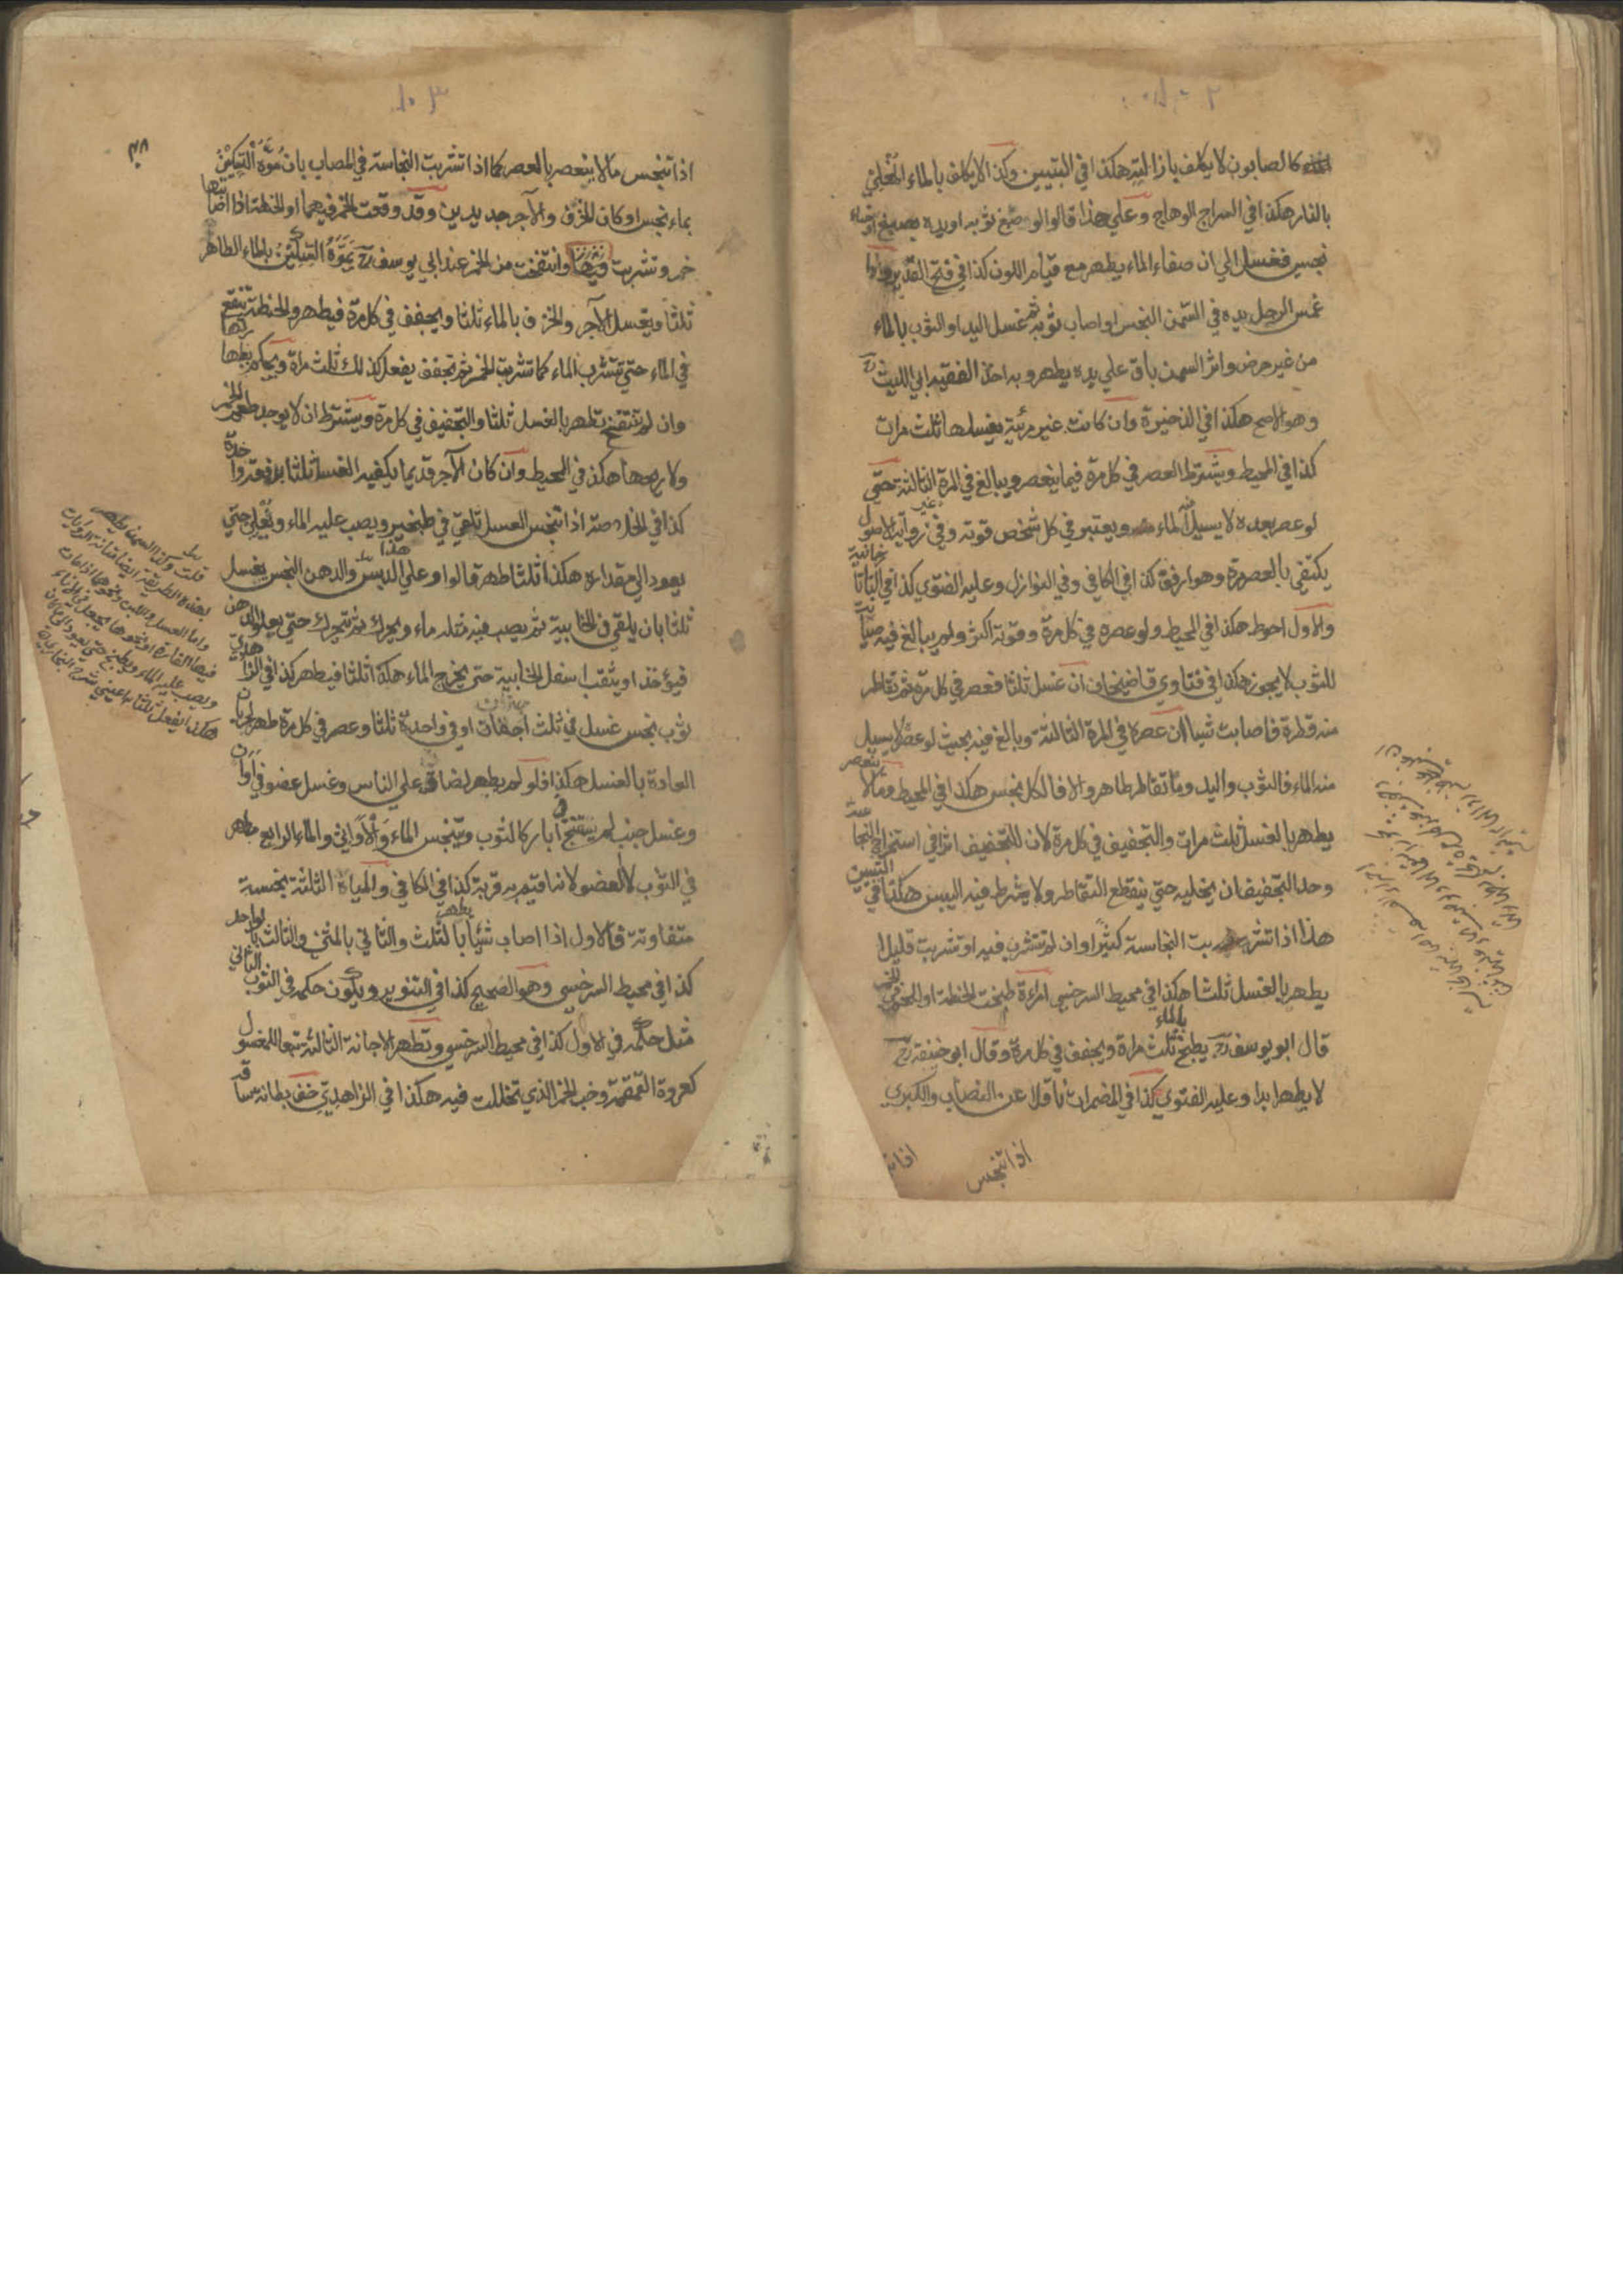 ١٠٢
كالصابون لا يكلف بازالته هكذا في التبيين وكذا لا يكلف بالماء المغلي
بالنار هكذا في السراج الوهاج وعلى هذا قالوا لو صبغ ثوبه او يده بصبغ او حناء
نجسين فغسل الي ان صفاء الماء يطهر مع قيام اللون كذا في فتح القدير ولو
غمس الرجل يده في السمن النجس او اصاب ثوبه ثم غسل اليد او الثوب بالماء
من غير حرض واثر السمن باق علي يده يطهر وبه اخذ الفقيه ابي الليث رح
وهو الاصح هكذا في الذخيرة وان كانت غير مرئية يغسلها ثلث مرات
كذا في المحيط ويشترط العصر في كل مرة فيما ينعصر ويبالغ في المرة الثالثة حتي
لو عصر بعده لا يسيل منه الماء ويعتبر في كل شخص قوته وفي غير رواية الاصول
يكتفي بالعصر مرة وهو ارفق كذا في الكافي وفي النوازل وعليه الفتوي كذا في التاتارخانية
والاول احوط هكذا في المحيط ولو عصره في كل مرة وقوته اكثر ولم يبالغ فيه صيانة
للثوب لا يجوز هكذا في فتاوي قاضيخان ان غسل ثلثا فعصر في كل مرة ثم تقاطر
منه قطرة فاصابت شيا ان عصره في المرة الثالثة وبالغ فيه بحيث لو عصر لا يسيل
منه الماء فالثوب واليد وما تقاطر طاهر والا فالكل نجس هكذا في المحيط وما لا ينعصر
يطهر بالغسل ثلث مرات والتجفيف في كل مرة لان للتجفيف اثرا في استخراج النجاسة
وحد التجفيف ان يخليه حتي ينقطع التقاطر ولا يشرط فيه اليبس هكذا في التبيين
هذا اذا تشربت النجاسة كثيرا وان لم تتشرب فيه او تشربت قليلا
يطهر بالغسل ثلثا هكذا في محيط السرخسي امرءة طبخت الحنطة او اللحم في الخمر
قال ابو يوسف رح يطبخ بالماء ثلث مرات ويجفف في كل مرة وقال ابو حنيفة رح
لا يطهر ابدا وعليه الفتوي كذا في المضمرات ناقلا عن النصاب والكبري
اذا تنجس
١٠٣
اذا تنجس ما لا ينعصر بالعصر كما اذا تشربت النجاسة في المصاب بان موّه السكين
بماء نجس او كان الخزف والآجر جديدين وقد وقعت الخمر فيهما او الحنطة اذا اصابتها
خمر وتشربت فيها وانتفخت من الخمر عند ابي يوسف رح يموّه السكين بالماء الطاهر
ثلثا ويغسل الآجر والخزف بالماء ثلثا ويجفف في كل مرة فيطهر والحنطة تنقع
في الماء حتي تتشرب الماء كما تشربت الخمر ثم تجفف يفعل كذلك ثلث مرات ويحكم بطهارتها
وان لم تنتفخ تطهر بالغسل ثلثا والتجفيف في كل مرة ويشترط ان لا يوجد طعم الخمر
ولا ريحها هكذا في المحيط وان كان الآجر قديما يكفيه الغسل ثلثا بدفعة واحدة
كذا في الخلاصة اذا تنجس العسل تلقي في طنجير ويصب عليه الماء ويغلي حتي
يعود الي مقداره هكذا ثلثا طهر قالوا وعلي هذا الدبس والدهن النجس يغسل
ثلثا بان يلقي في الخابية ثم يصب فيه مثله ماء ويحرك ثم يترك حتي يعلو الدهن
فيؤخذ او يثقب اسفل الخابية حتي يخرج الماء هكذا ثلثا فيطهر كذا في الزاهدي
ثوب نجس غسل في ثلث اجفانات او في واحدة ثلثا وعصر في كل مرة طهر لجريان
العادة بالغسل هكذا فلو لم يطهر لضاق علي الناس وغسل عضو في اوان
وغسل جنب لم يستنج في آبار كالثوب ويتنجس الماء والاواني والماء الرابع مطهر
في الثوب لا العضو لانه اقيم به قربة كذا في الكافي والمياه الثلثة نجسة
متفاوتة فالاول اذا اصاب شيأ يطهر بالثلث والثاني بالمثني والثالث بالواحد
كذا في محيط السرخسي وهو الصحيح كذا في التنوير ويكون حكمه في الثوب الثاني
مثل حكمه في الاول كذا في محيط السرخسي وتطهر الاجانة الثالثة تبعا للمغسول
كعروة القمقمة وخب الخمر الذي تخللت فيه هكذا في الزاهدي خف بطانة ساقه
قلت وكذا السمن يطهر
بهذه الطريقة ايضا
واما العسل واللبن ونحوها اذا مات
فيها الفارة او نحوها يجعل في الاناء
ويصب عليه الماء ويطبخ حتي يعود الي ما كان
هكذا يفعل ثلثا عيني شرح البخاري